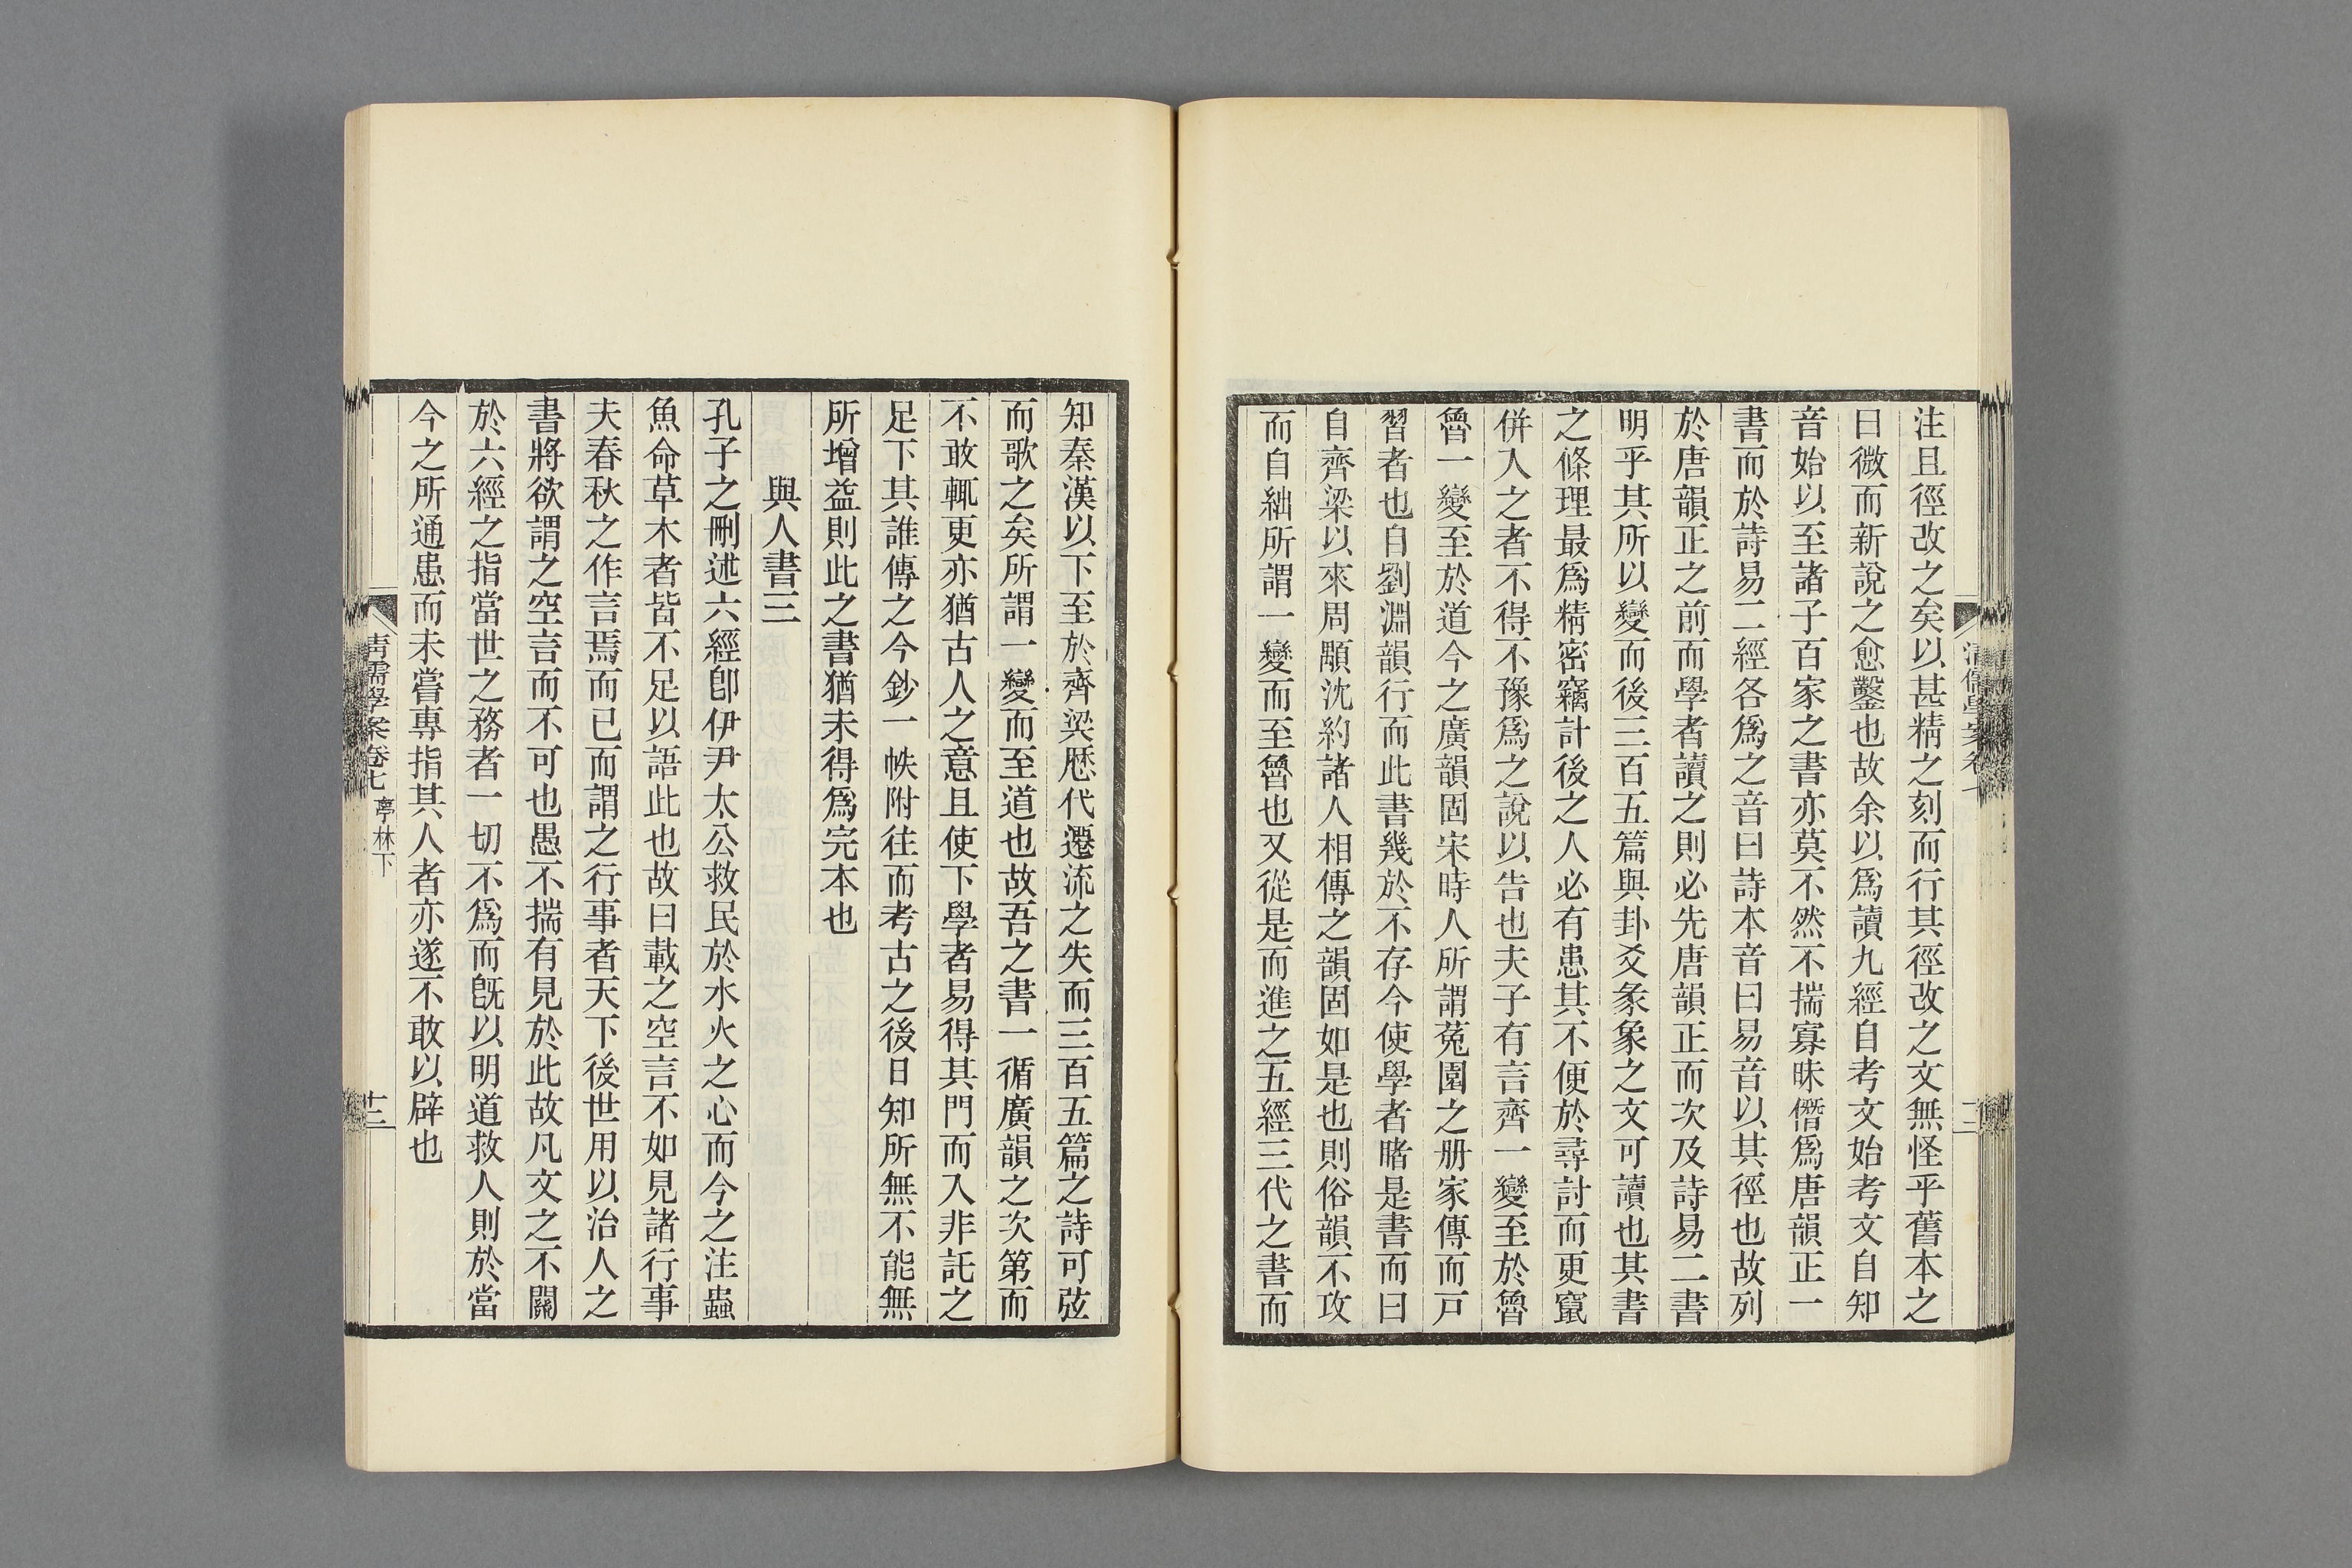 注且徑改之矣以甚精之刻而行其徑改之文無怪乎舊本之
日微而新說之愈鑿也故余以爲讀九經自考文始考文自知
音始以至諸子百家之書亦莫不然不揣寡昧僭爲唐韻正一
書而於詩易二經各爲之音曰詩本音曰易音以其徑也故列
於唐韻正之前而學者讀之則必先唐韻正而次及詩易二書
明乎其所以變而後三百五篇與卦爻彖象之文可讀也其書
之條理最爲精密竊計後之人必有患其不便於尋討而更竄
併入之者不得不豫爲之說以告也夫子有言齊一變至於魯
魯一變至於道今之廣韻固宋時人所謂菟園之册家傳而戸
習者也自劉淵韻行而此書幾於不存今使學者睹是書而曰
自齊梁以來周顒沈約諸人相傳之韻固如是也則俗韻不攻
而自絀所謂一變而至魯也又從是而進之五經三代之書而
知秦漢以下至於齊梁歷代遷流之失而三百五篇之詩可弦
而歌之矣所謂一變而至道也故吾之書一循廣韻之次第而
不敢輒更亦猶古人之意且使下學者易得其門而入非託之
足下其誰傳之今鈔一帙附往而考古之後日知所無不能無
所增益則此之書猶未得爲完本也
與人書三
孔子之刪述六經卽伊尹太公救民於水火之心而今之注蟲
魚命草木者皆不足以語此也故曰載之空言不如見諸行事
夫春秋之作言焉而已而謂之行事者天下後世用以治人之
書將欲謂之空言而不可也愚不揣有見於此故凡文之不關
於六經之指當世之務者一切不爲而旣以明道救人則於當
今之所通患而未嘗專指其人者亦遂不敢以辟也
淸儒學案卷七 亭林下
十三